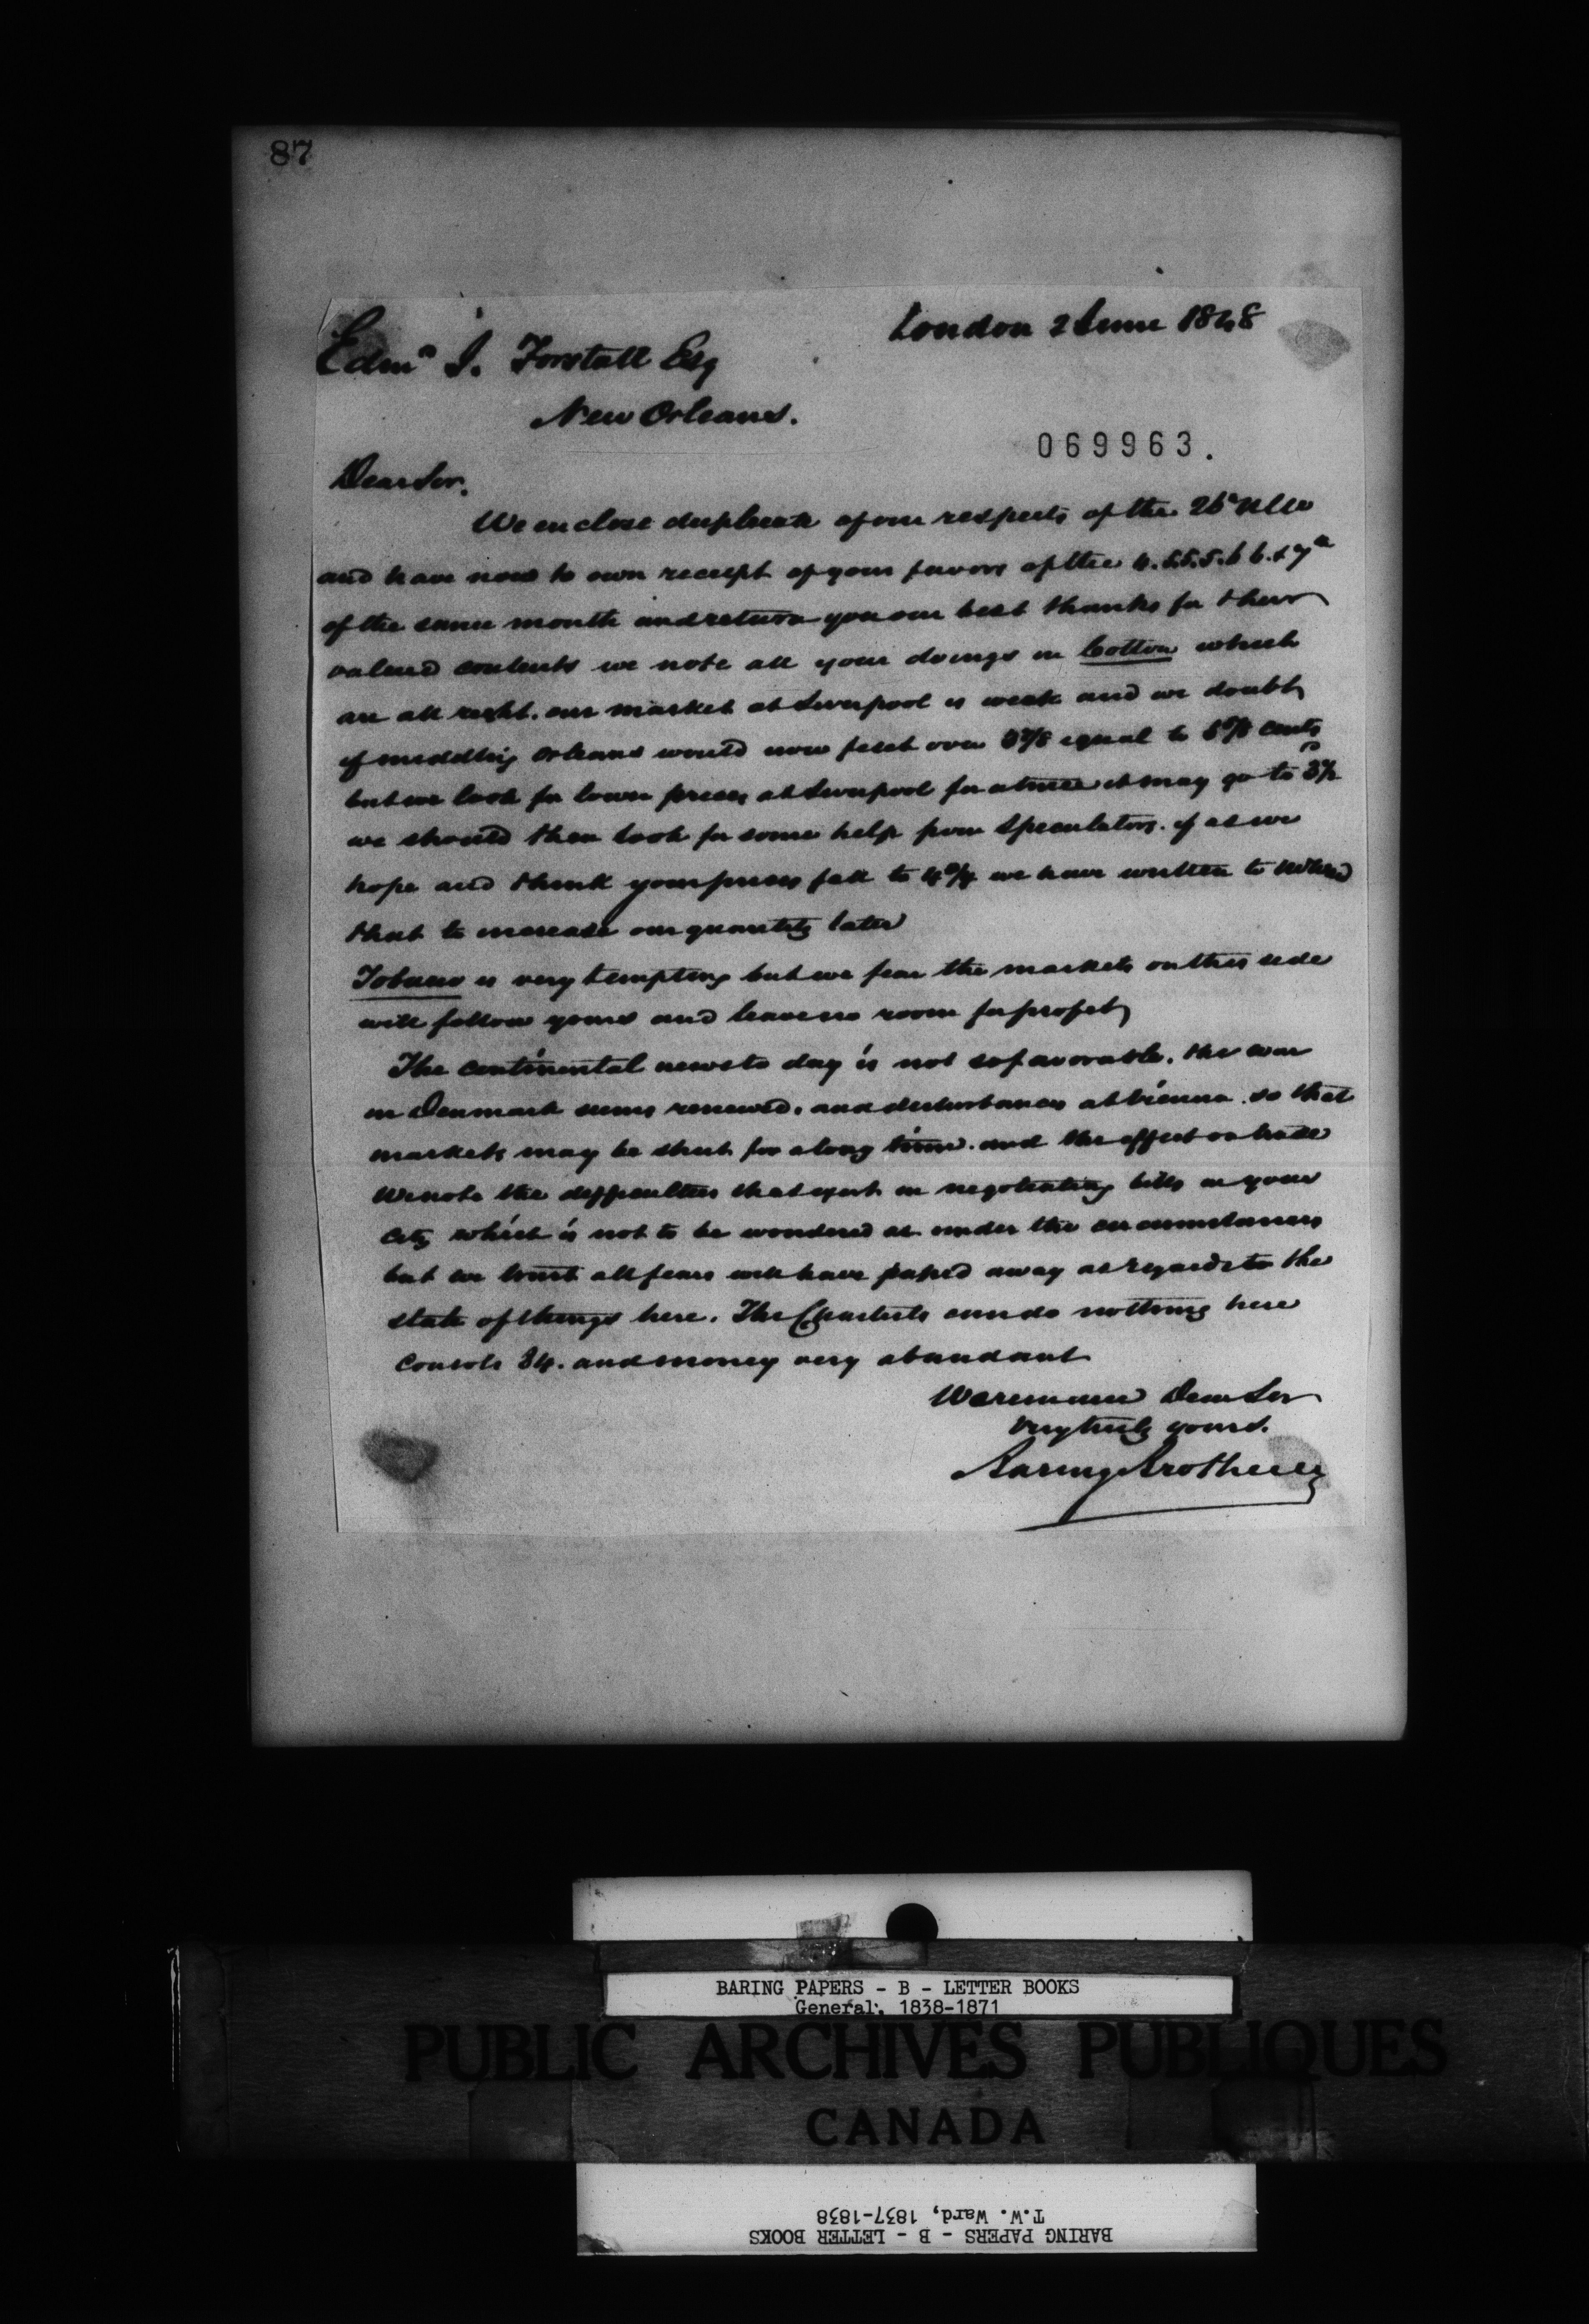 87
London 2 June 1848
Edmd J. Forstall Esq
New Orleans.
069963.
Dear Sir.
We enclose duplicate of our respects of the 26 Ulto
and have now to own receipt of your favors of the 4. 5.5.5. 6 6. & 7th
of the same month and return you our best thanks for their
valued contents we note all your doings in Cotton which
are all right. our market at Liverpool is weak and we doubt
if middling Orleans would now fetch over 3 7/8 equal to 5 5/8 cents
but we look for lower prices at Liverpool for a time it may go to 3 1/2
we should then look for some help from Speculators. if as we
hope and think your prices fall to 4 3/4 we have written to
that to increase our quantity later
Tobacco is very tempting but we fear the markets on this side
will follow yours and leave no room for profit
The continental news to day is not so favorable. the war
in Denmark seems renewed. and disturbances at Vienna. so that
markets may be shut for a long time. and the effect on trade
We note the difficulties that exist in negotiating bills in your
City which is not to be wondered at under the circumstances
but we trust all fears will have passed away as regards to the
state of things here. The Chartists can do nothing here
Consols 84. and money very abundant
We remain Dear Sir
very truly yours.
Baring Brothers
BARING PAPERS - B - LETTER BOOKS
General, 1838-1871
PUBLIC ARCHIVES PUBLIQUES
CANADA
T.W. Ward, 1837-1838
BARING PAPERS - B - LETTER BOOKS